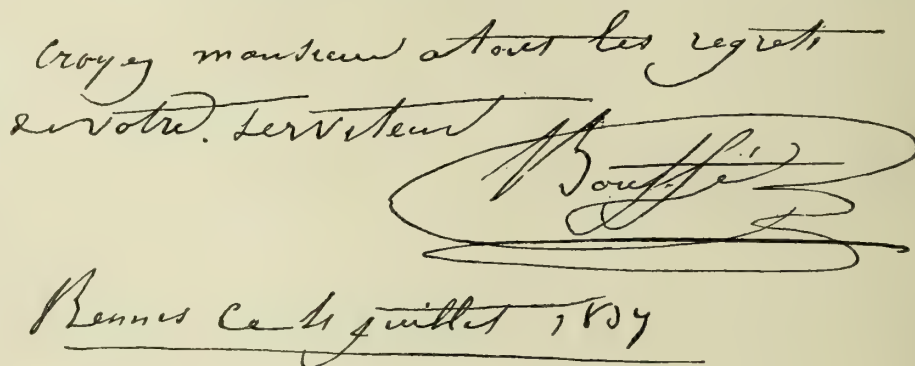 croyez monsieur a tous les regrets
de votre. serviteur
Bouffé
Rennes ce juillet